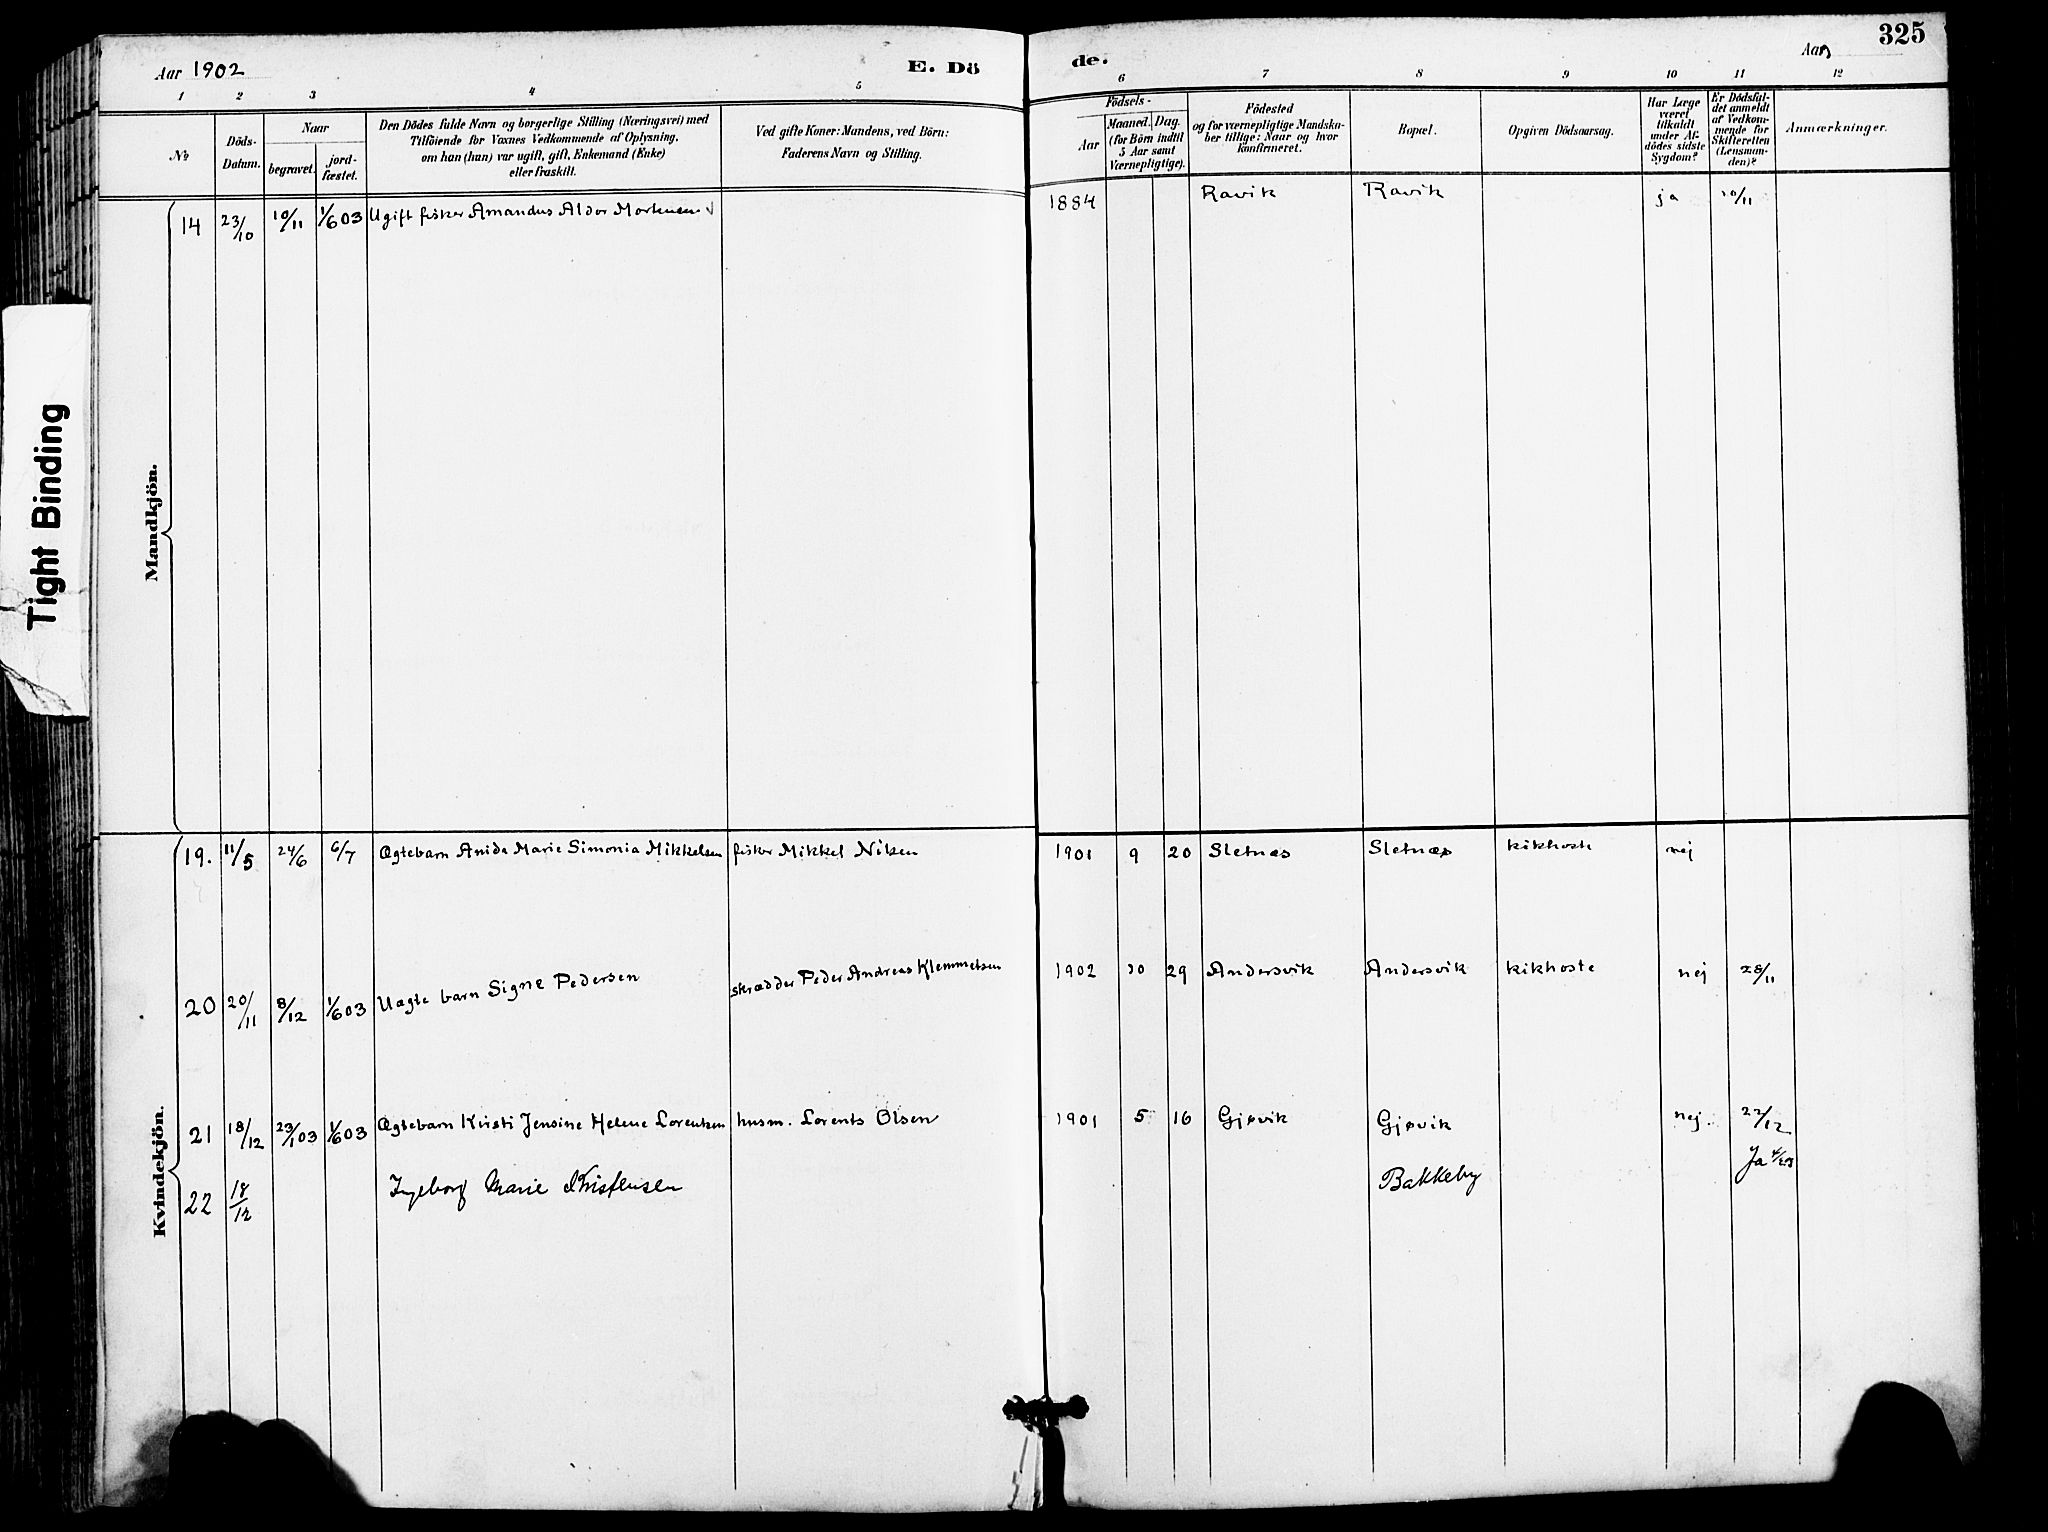 Aar 1902 E. Dö de. Aar 325
1 2 3 4 5 6 7 8 9 10 11 12
№
Döds-Datum.
Naar
begravet. jord-fæstet.
Den Dödes fulde Navn og borgerlige Stilling (Næringsvei) med
Tilföiende for Voxnes Vedkommende af Oplysning,
om han (hun) var ugift, gift, Enkemand (Enke)
eller fraskilt.
Ved gifte Koner: Mandens, ved Börn:
Faderens Navn og Stilling.
Födsels-
Aar Maaned. Dag.
(for Börn indtil
5 Aar samt
Værnepligtige).
Födested
og for værnepligtige Mandska-
ber tillige: Naar og hvor
konfirmeret.
Bopæl.
Opgiven Dödsaarsag.
Har Læge
været
tilkaldt
under Af-
dödes sidste
Sygdom?
Er Dödsfal-
det anmeldt
af Vedkom-
mende for
Skifteretten
(Lensman-
den)?
Anmærkninger.
Mandkjön.
14 23/10 10/11 1/6 03 Ugift fisker Amandus Aldor Mortensen 1884 Ravik Ravik ja 10/11
Kvindekjön.
19. 11/5 24/6 6/7 Ægtebarn Anida Marie Simonia Mikkelsen fisker Mikkel Nilsen 1901 9 20 Sletnæs Sletnæs kikhoste nej
20 20/11 8/12 1/6 03 Uægte barn Signe Pedersen skrædder Peder Andreas Klemmetsen 1902 10 29 Andersvik Andersvik kikhoste nej 28/11
21 18/12 23/1 03 1/6 03 Ægtebarn Kirsti Jensine Helene Lorentsen husm. Lorents Olsen 1901 5 16 Gjøvik Gjøvik nej. 22/12
22 18/12 Ingeborg Marie Kristensen Bakkeby Ja
Tight Binding